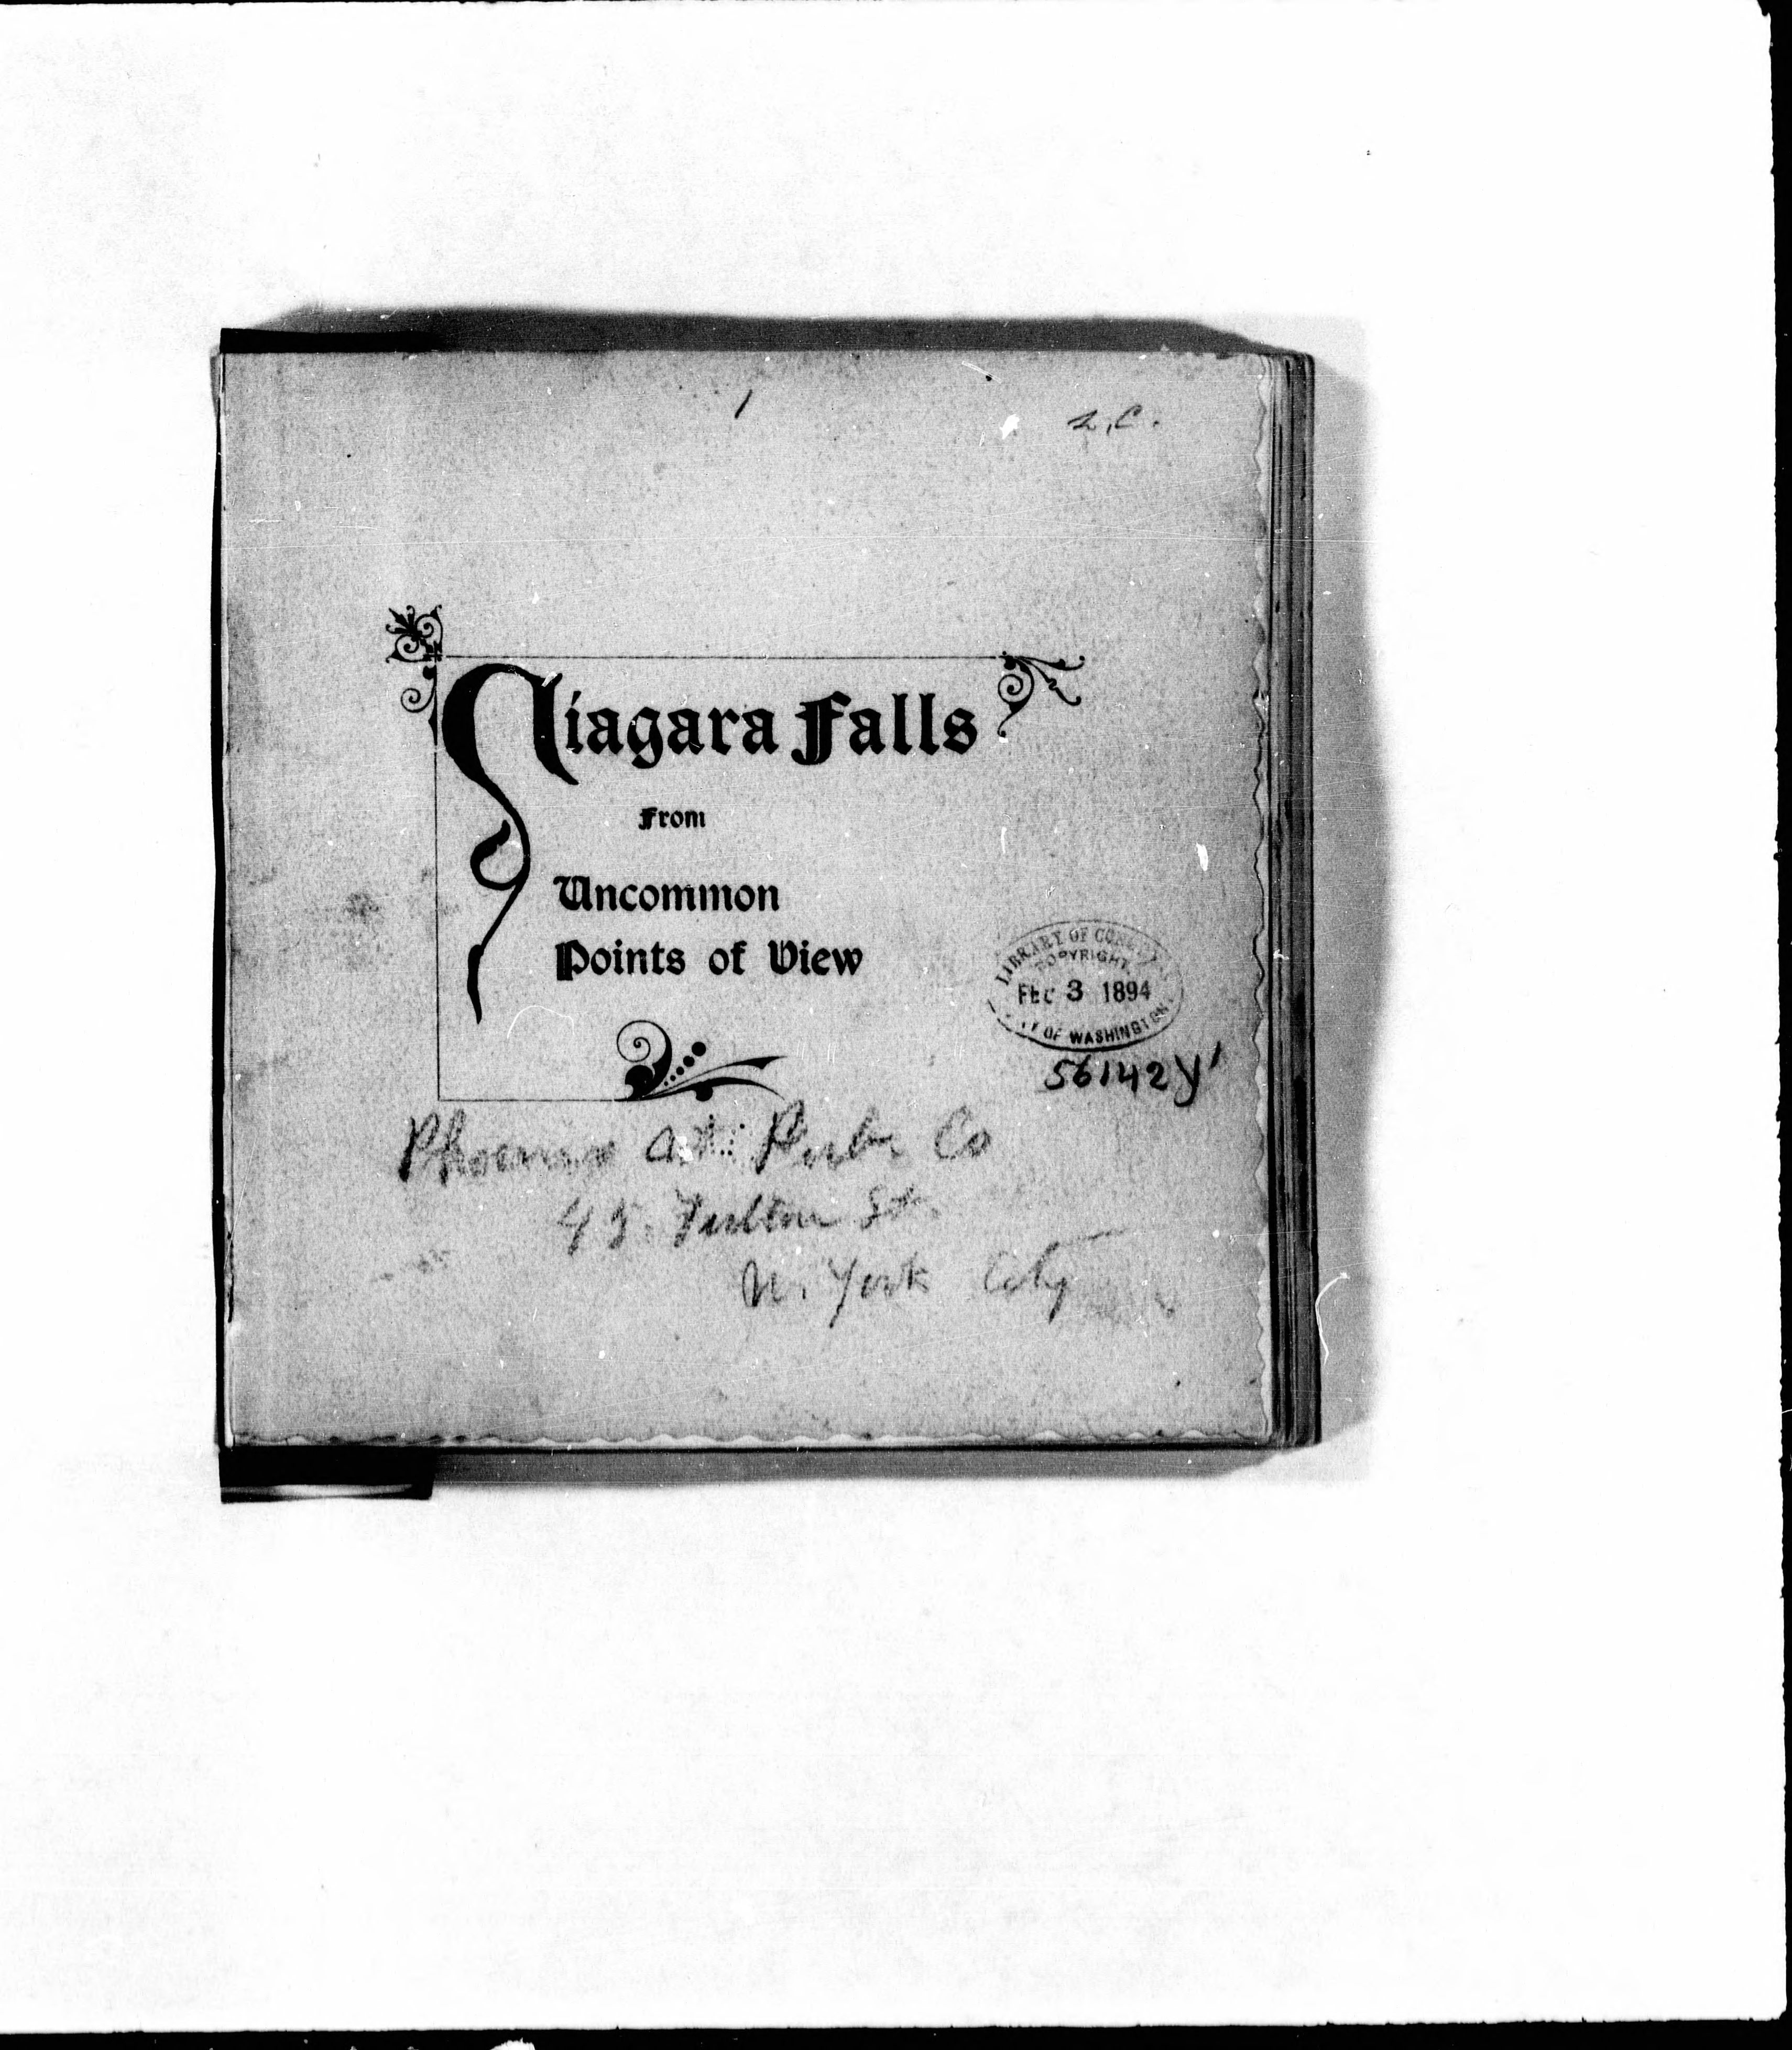 1
2.C.
Niagara Falls
From
Uncommon
Points of View
LIBRARY OF
COPYRIGHT
3 1894
OF WASHINGTON
56142Y'
Phoenix Art Pub. Co
45 Fulton St.
N. York City